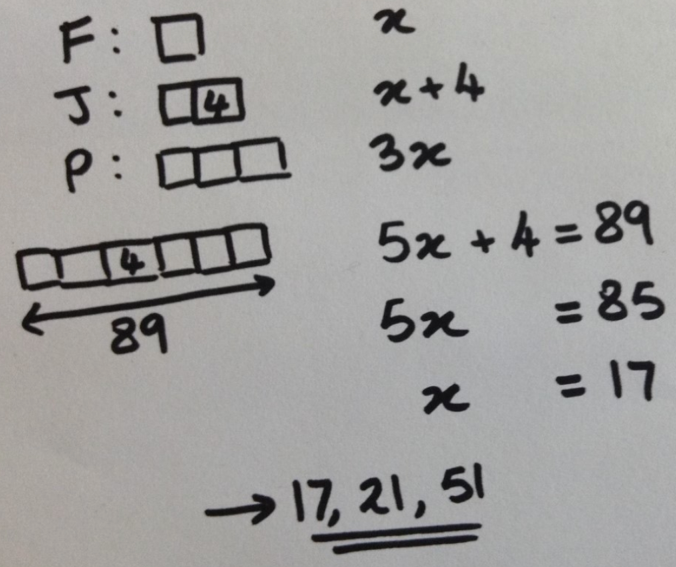 F: x
J: 4 x + 4
P: 3x
4 5x + 4 = 89
89 5x = 85
x = 17
→ 17, 21, 51